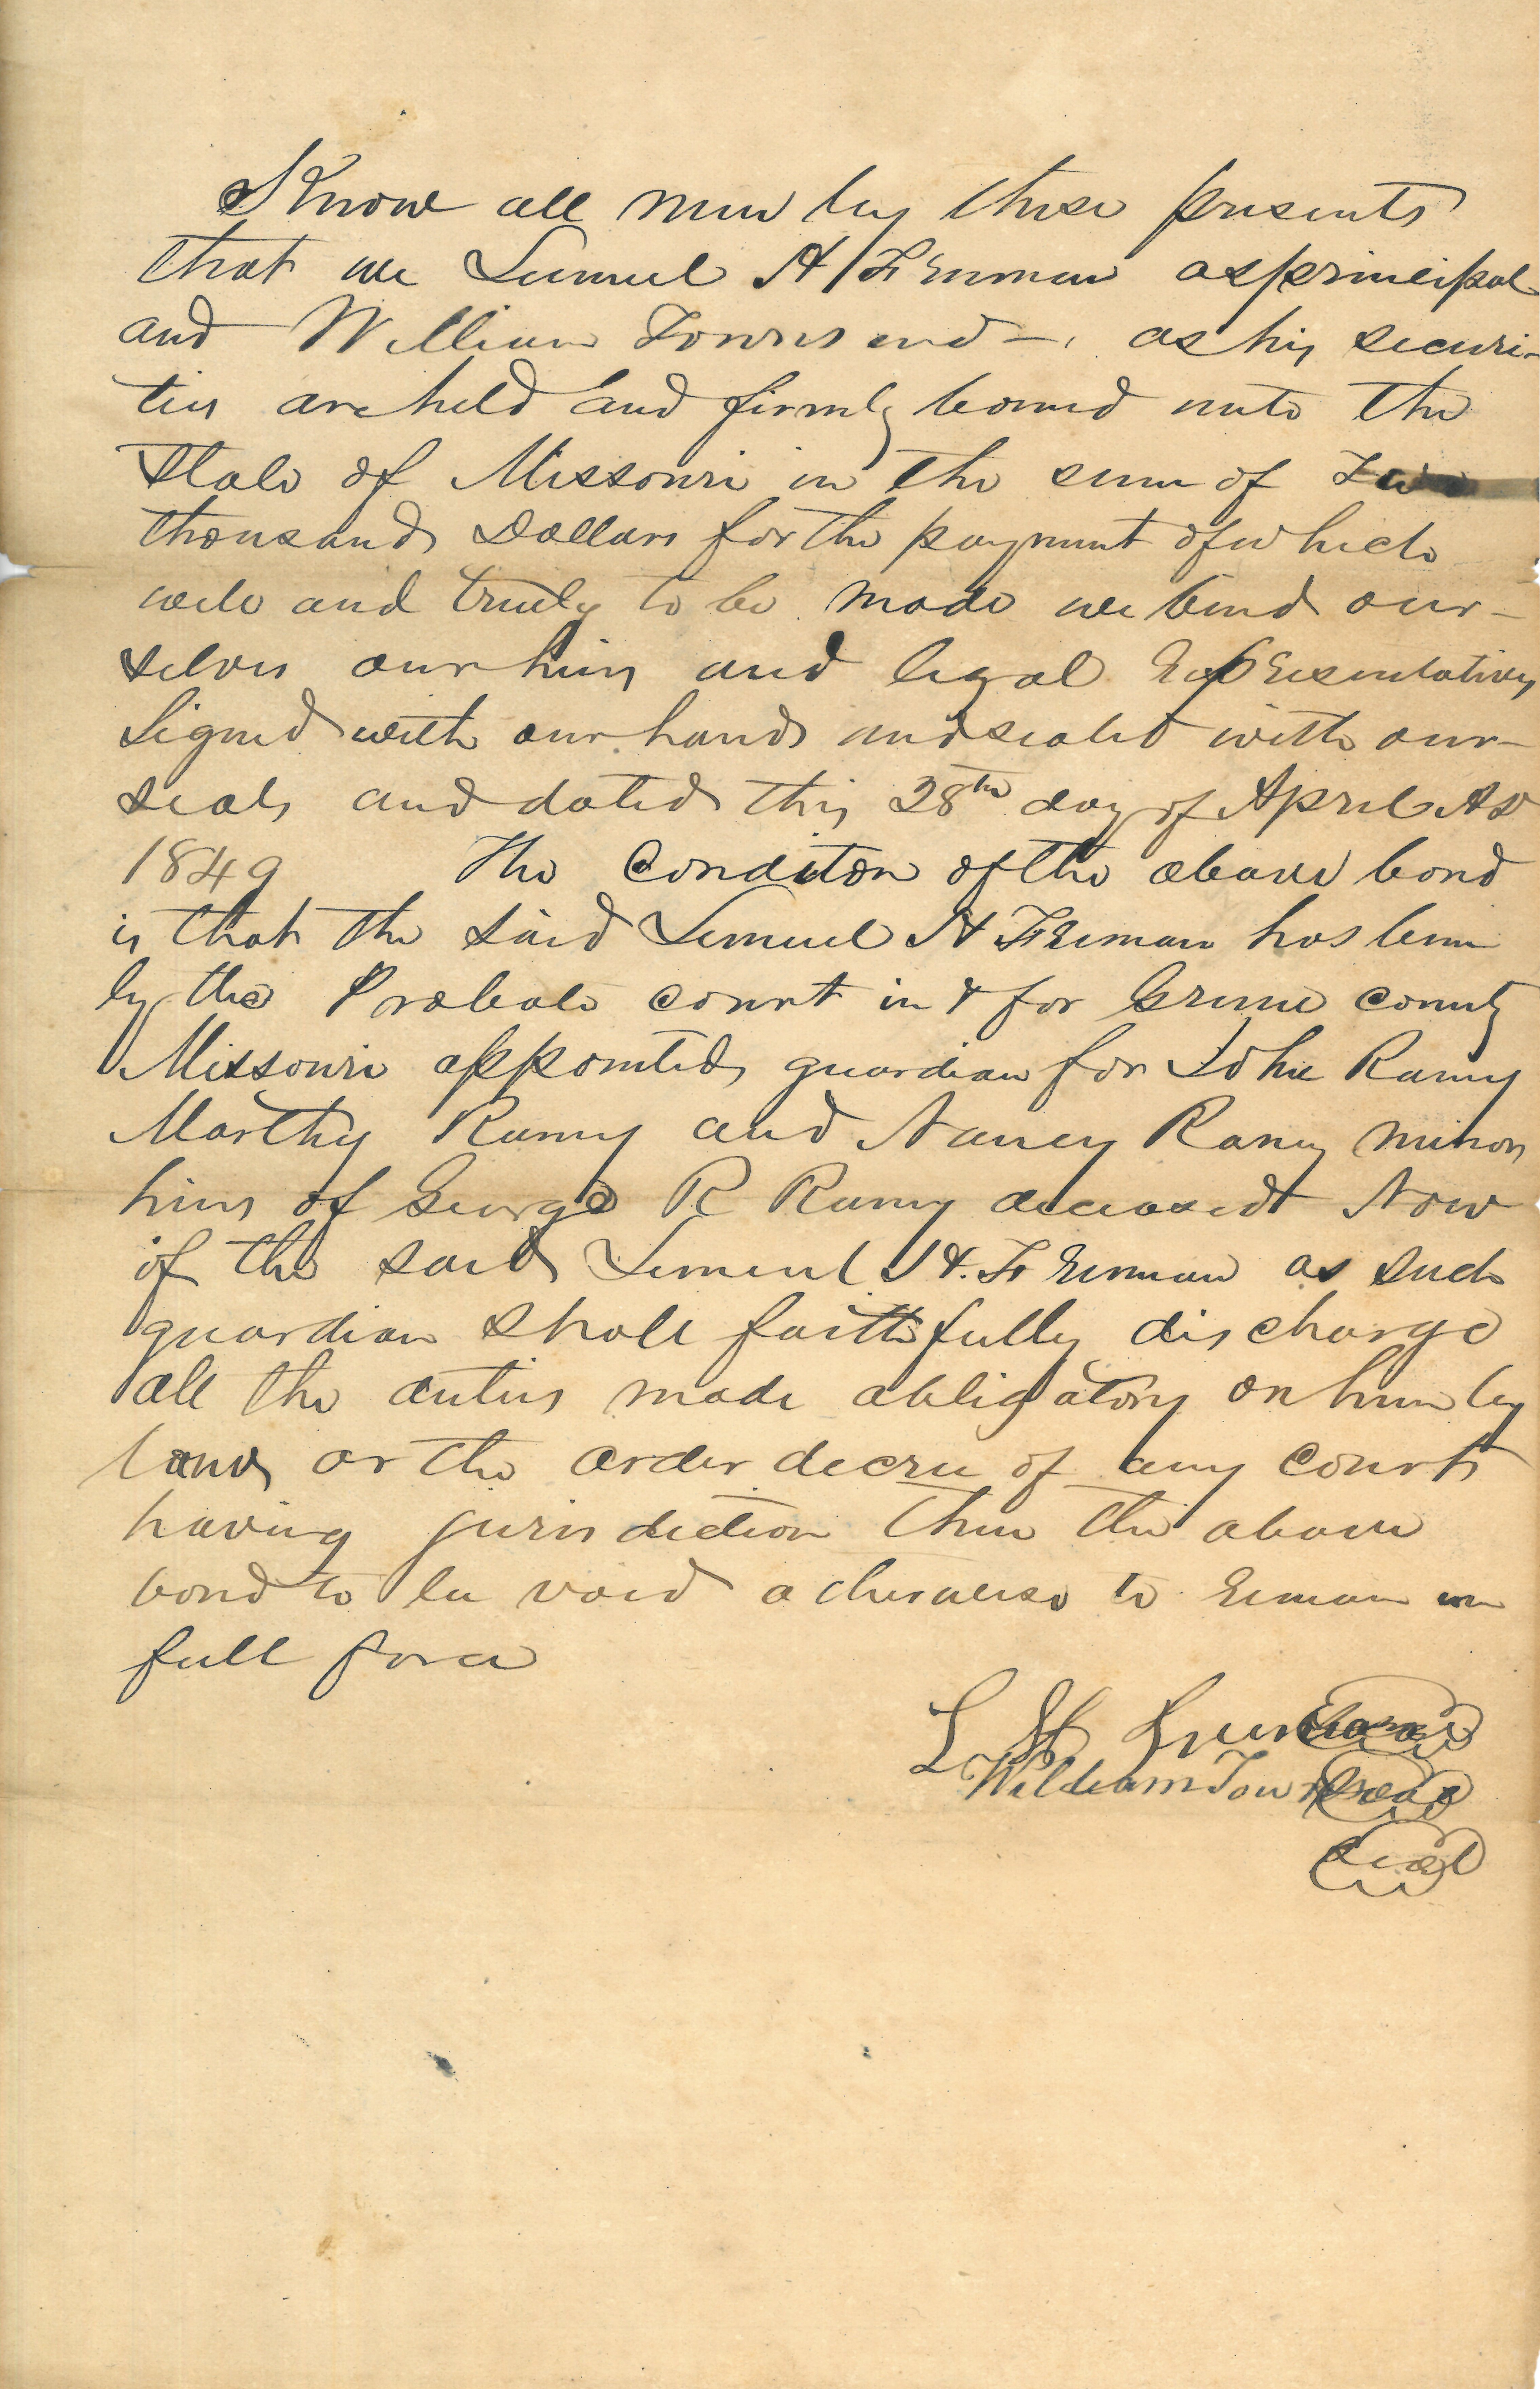 Know all men by these presents
that we Lemuel H Freeman as principal
and William Townsend — as his securi-
ties are held and firmly bound unto the
State of Missouri in the sum of Two
thousand Dollars for the payment of which
well and truly to be made we bind our-
selves our heirs and legal representatives
Signed with our hands and sealed with our
seals and dated this 28th day of April AD
1849 The Conditon of the above bond
is that the said Lemuel H Freeman has been
by the Probate court in & for Greene county
Missouri appointed guardian for John Ramy
Marthy Ramy and Nancy Ramy minor
heirs of George R Ramy deceased Now
if the said Lemuel H. Freeman as such
guardian shall faithfully discharge
all the duties made obligatory on him by
law or the order decree of any court
having jurisdiction then the above
bond to be void otherwise to remain in
full force
L H Freeman seal
William Townsend seal
seal